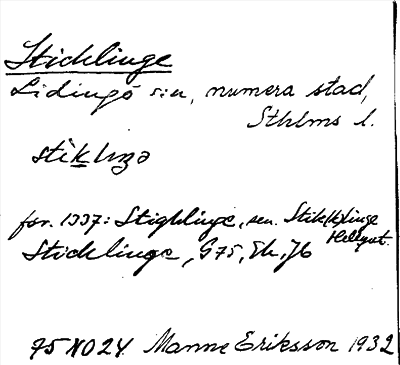 Sticklinge
Lidingö s:n, numera stad,
Sthlms l.
stìklıŋə
för. 1337: Stighlinge, sen. Stik(k)linge
Sticklinge, G75, Ek, Jb
75 NO 24 Manne Eriksson 1932